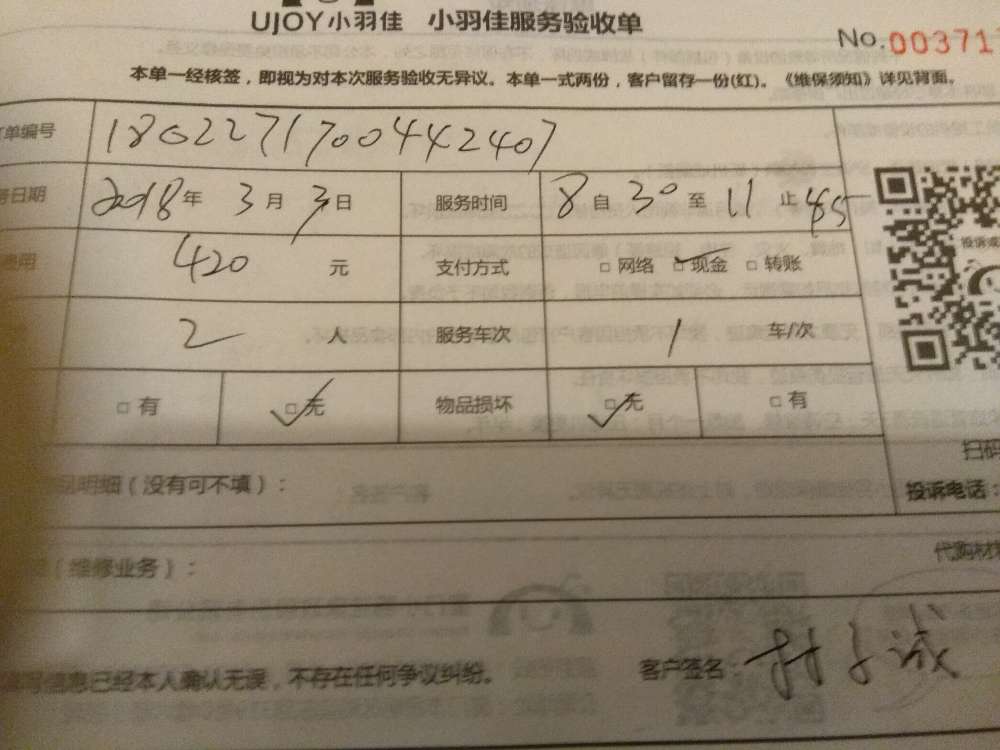 UJOY小羽佳 小羽佳服务验收单
No.00371
本单一经核签，即视为对本次服务验收无异议。本单一式两份，客户留存一份(红)。《维保须知》详见背面。
单编号 180227170044 2407
日期 2018年 3月 3日 服务时间 8自30至11止45
费用 420 元 支付方式 □网络 □现金 □转账
2 人 服务车次 1 车/次
□有 □无 物品损坏 □无 □有
明细（没有可不填）：
扫码
投诉电话：
（维修业务）：
代购材
信息已经本人确认无误，不存在任何争议纠纷。 客户签名